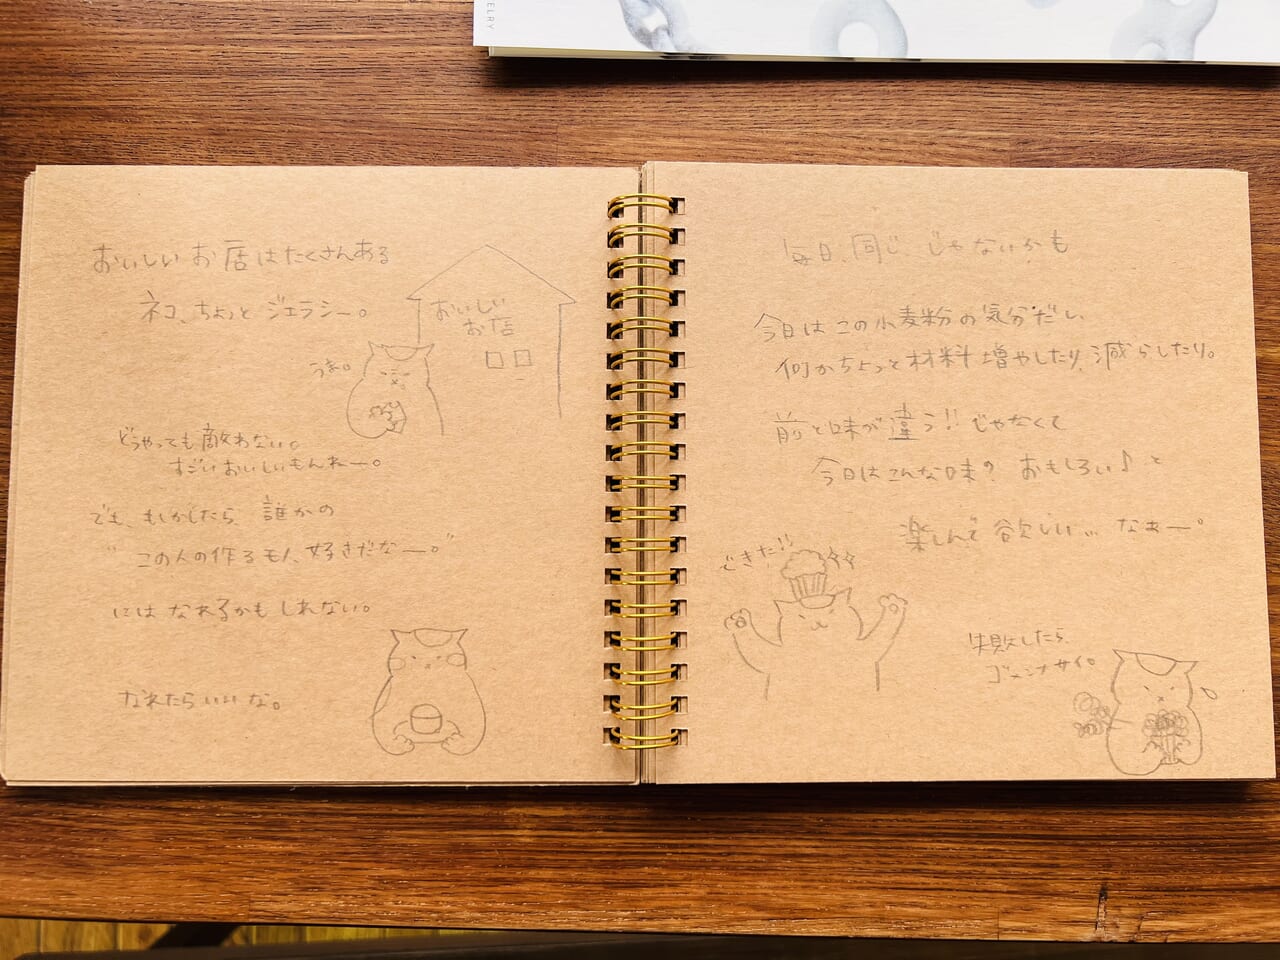 ELRY
おいしいお店はたくさんある
ネコ、ちょっとジェラシー。
おいしい
お店
うま。
どうやっても敵わない。
すごいおいしいもんねー。
でも、もしかしたら、誰かの
"この人の作るもん、好きだなー。"
にはなれるかもしれない。
なれたらいいな。
毎日、同じじゃないかも
今日はこの小麦粉の気分だい
何かちょっと材料増やしたり、減らしたり。
前と味が違う!!じゃなくて
今日はこんな味?おもしろい♪と
楽しんで欲しい…なぁー。
できた!!
失敗したら、
ゴメンナサイ。